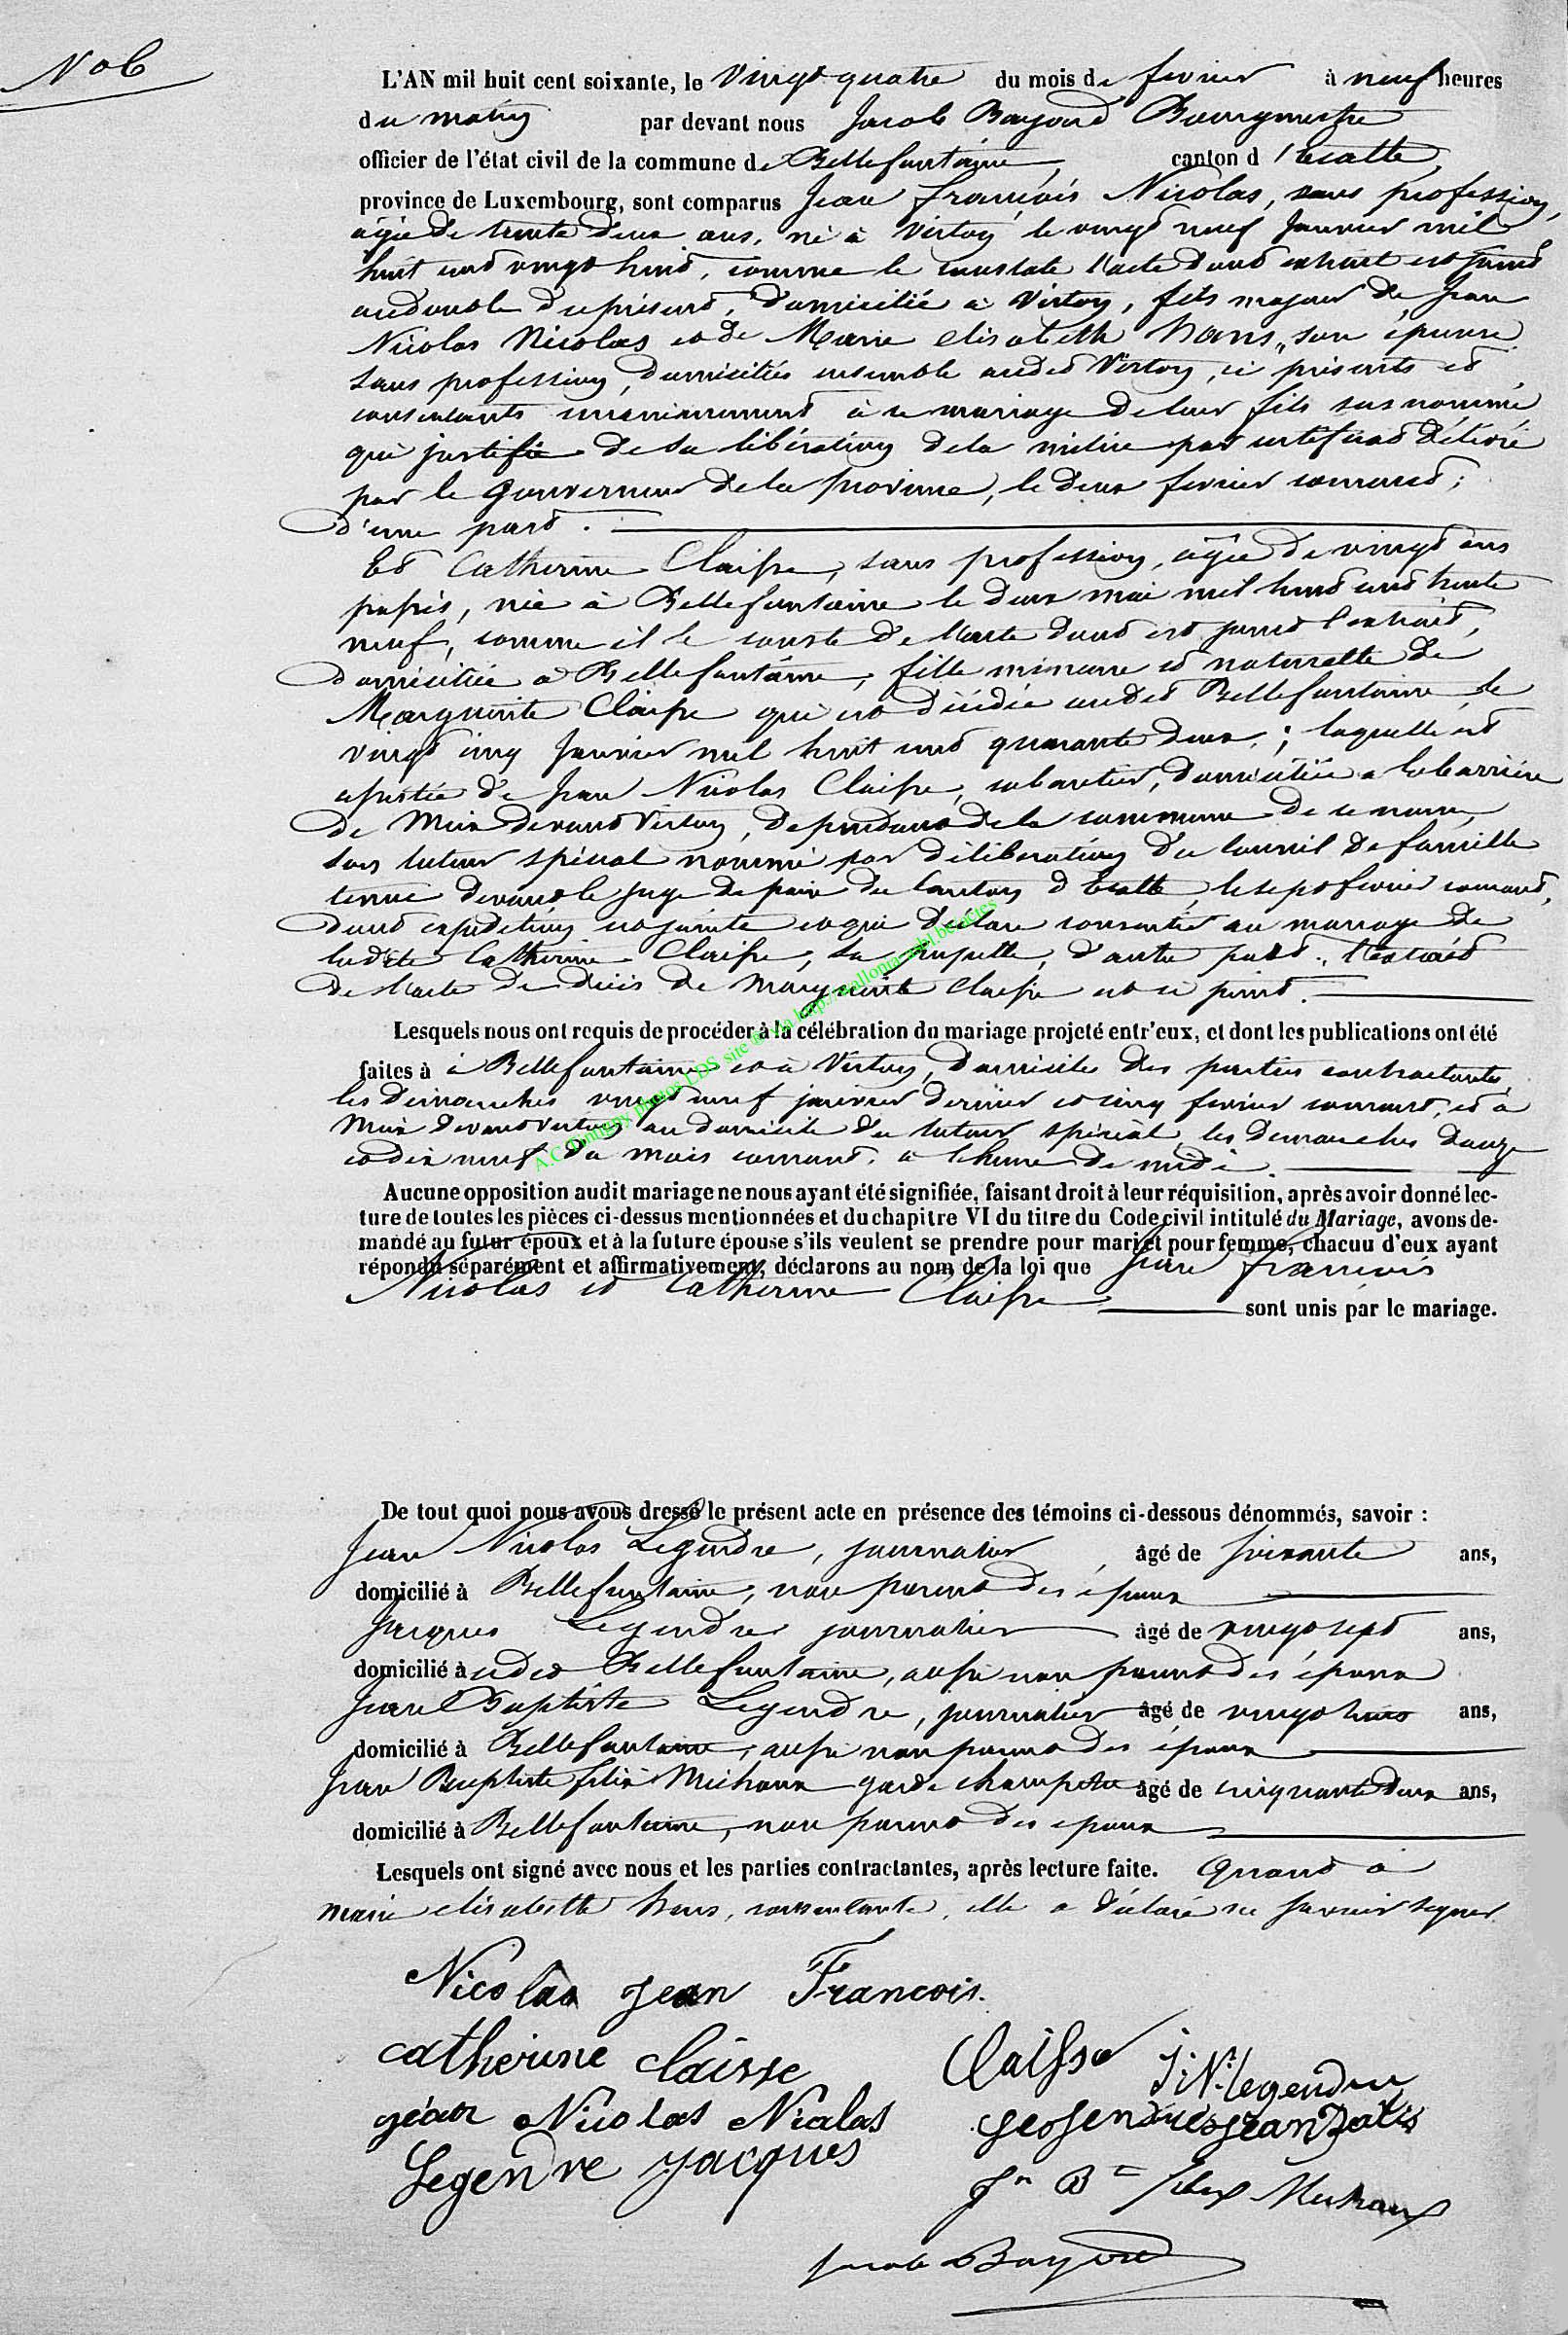 N° 6
L'AN mil huit cent soixante, le vingt quatre du mois de fevrier à neuf heures
du matin par devant nous Jacob Bourgmestre
officier de l'état civil de la commune de Bellefontaine, canton d'Etalle,
province de Luxembourg, sont comparus Jean François Nicolas, sans profession,
âgé de trente deux ans, né à Virton le vingt neuf Janvier mil
huit cent vingt huit, comme le constate l'acte dont extrait est joint
au double du présent, domicilié à Virton, fils majeur de Jean
Nicolas Nicolas et de Marie elisabeth Hans, son épouse
sans profession, domiciliés ensemble audit Virton, ci présents et
consentants unanimement à ce mariage de leur fils susnommé,
qui justifie de sa libération de la milice par certificat délivré
par le Gouverneur de la province, le deux fevrier courant;
d'une part.
Et Catherine Claisse, sans profession, âgée de vingt ans
passés, née à Bellefontaine le deux mai mil huit cent trente
neuf, comme il le conste de l'acte dont est joint l'extrait,
domiciliée à Bellefontaine, fille mineure et naturelle de
Marguerite Claisse qui est décédée audit Bellefontaine le
vingt cinq Janvier mil huit cent quarante deux; laquelle est
assistée de Jean Nicolas Claisse, cabaretier, domicilié à la barrière
de Meix devant Virton, dépendant de la commune de ce nom,
son tuteur spécial nommé par délibération du Conseil de famille
tenue devant le juge de paix du Canton d'Etalle, le sept fevrier courant,
dont expédition est jointe et qui déclare consentir au mariage de
ladite Catherine Claisse, sa pupille, d'autre part. l'extrait
de l'acte de décès de Marguerite Claisse est ci joint.
Lesquels nous ont requis de procéder à la célébration du mariage projeté entr'eux, et dont les publications ont été
faites à à Bellefontaine et à Virton, domiciles des parties contractantes,
les Dimanches vingt neuf janvier dernier et cinq fevrier courant, et à
Meix devant Virton au domicile du tuteur spécial, les Dimanches douze
et dix neuf du mois courant, à l'heure de midi.
Aucune opposition audit mariage ne nous ayant été signifiée, faisant droit à leur réquisition, après avoir donné lec-
ture de toutes les pièces ci-dessus mentionnées et du chapitre VI du titre du Code civil intitulé du Mariage, avons de-
mandé au futur époux et à la future épouse s'ils veulent se prendre pour mari et pour femme, chacuu d'eux ayant
répondu séparément et affirmativement, déclarons au nom de la loi que Jean François
Nicolas et Catherine Claisse sont unis par le mariage.
De tout quoi nous avons dressé le présent acte en présence des témoins ci-dessous dénommés, savoir :
Jean Nicolas Legendre, journalier, âgé de soixante ans,
domicilié à Bellefontaine, non parent des époux
Jacques Legendre journalier âgé de vingt sept ans,
domicilié à udit Bellefontaine, aussi non parent des époux
Jean Baptiste Legendre, journalier âgé de vingt trois ans,
domicilié à Bellefontaine, aussi non parent des époux
Jean Baptiste felix Michaux garde champetre âgé de cinquante deux ans,
domicilié à Bellefontaine, non parent des époux
Lesquels ont signé avec nous et les parties contractantes, après lecture faite. Quant à
marie elisabeth Hans, consentante, elle a déclaré ne savoir signer
Nicolas jean Francois.
catherine claisse
Claisse
J. N. legendre
jean Nicolas Nicolas
Legendre jacques
Jn Bte felix Michaux
Jacob